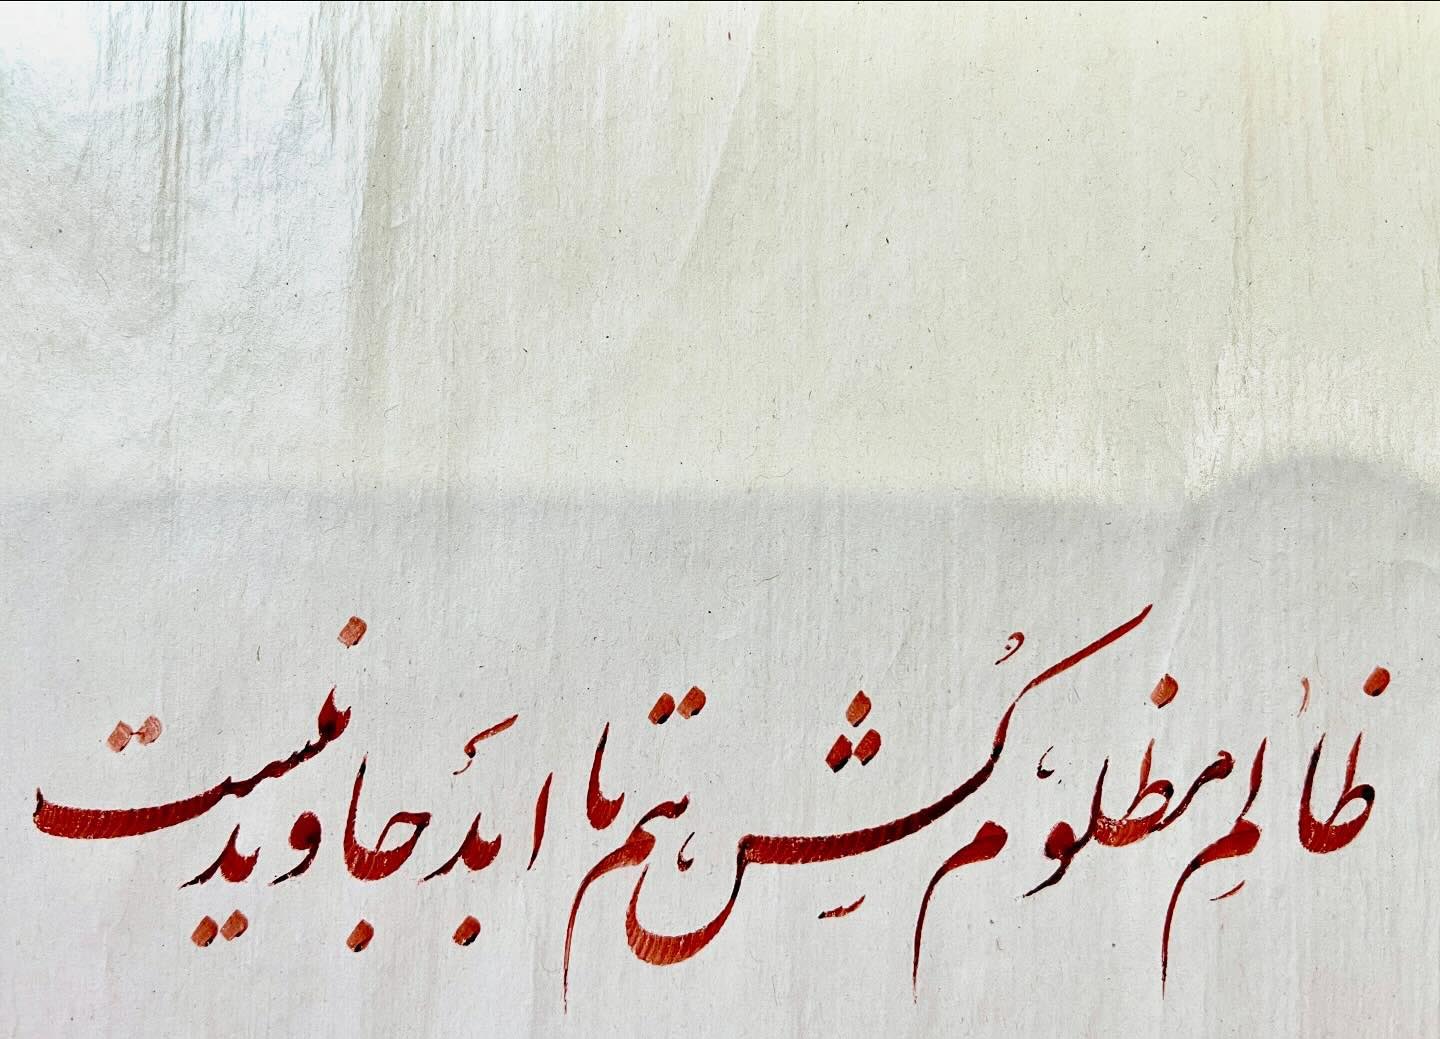 ظالمِ مظلوم کُشِ هم تا اَبَد جاوید نیست